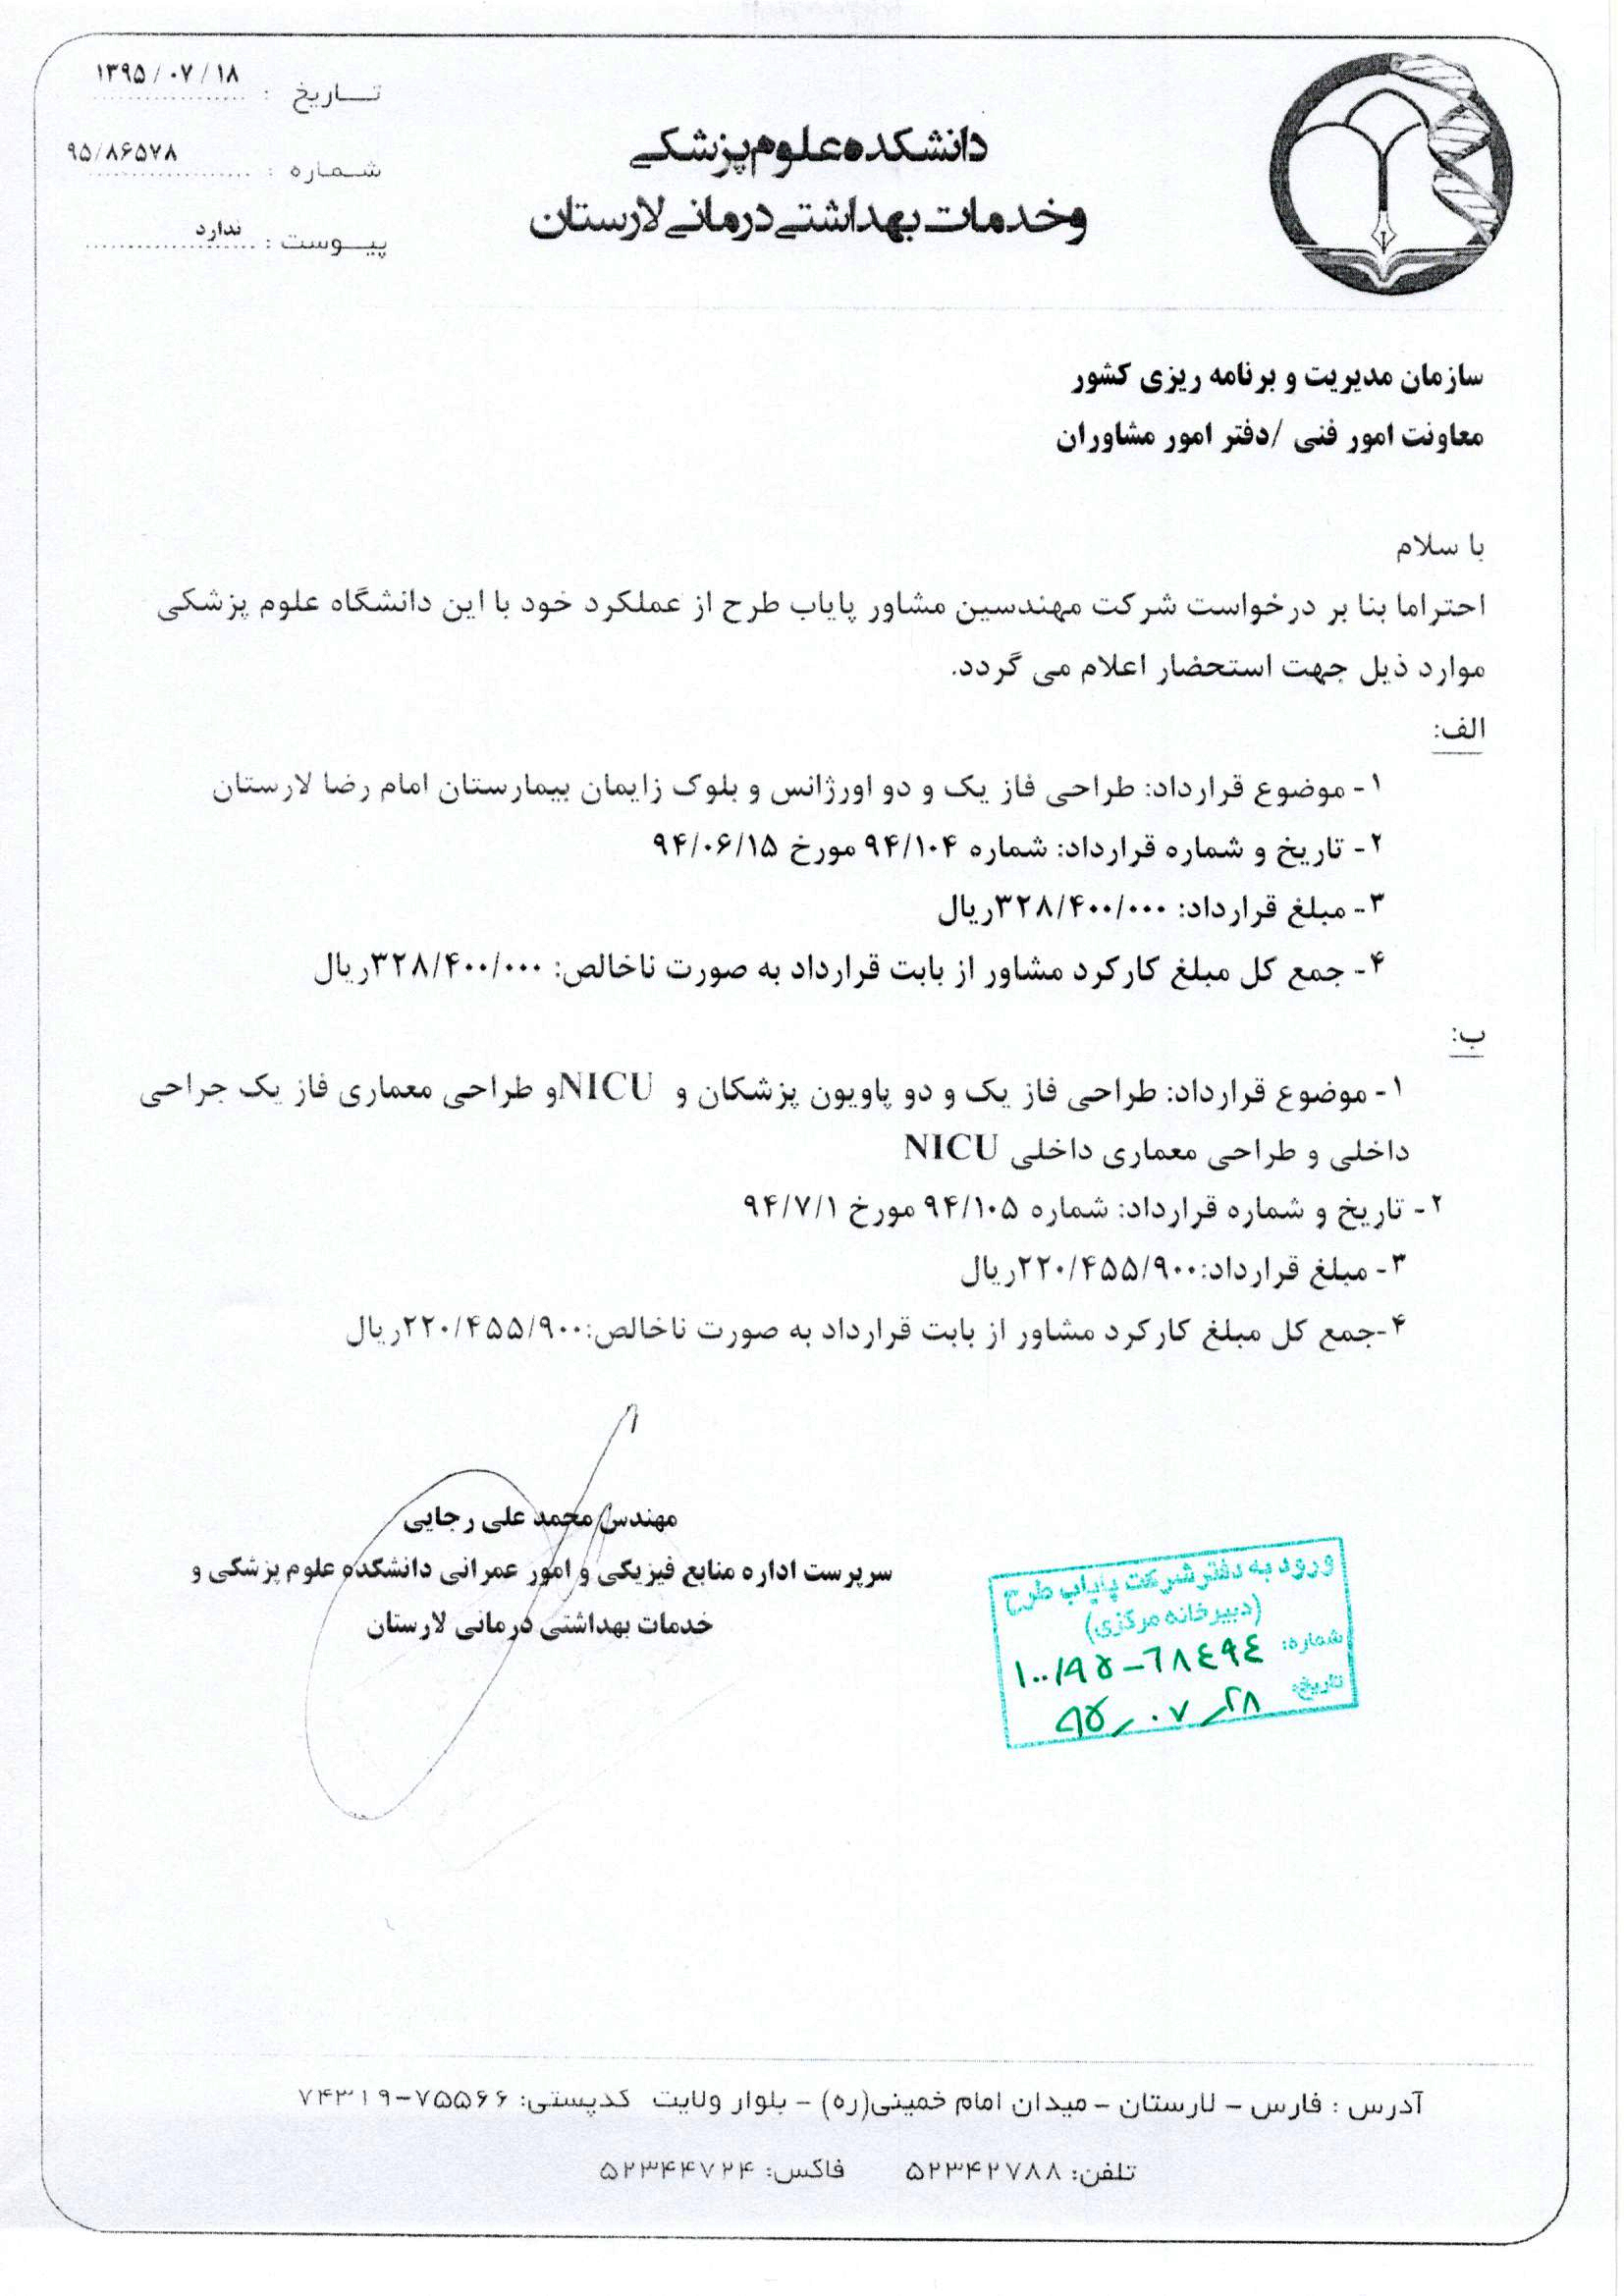 دانشکده علوم پزشکی
و خدمات بهداشتی درمانی لارستان
تاریخ : ۱۳۹۵/۰۷/۱۸
شماره : ۹۵/۸۶۵۷۸
پیوست : ندارد
سازمان مدیریت و برنامه ریزی کشور
معاونت امور فنی /دفتر امور مشاوران
با سلام
احتراما بنا بر درخواست شرکت مهندسین مشاور پایاب طرح از عملکرد خود با این دانشگاه علوم پزشکی
موارد ذیل جهت استحضار اعلام می گردد.
الف:
۱- موضوع قرارداد: طراحی فاز یک و دو اورژانس و بلوک زایمان بیمارستان امام رضا لارستان
۲- تاریخ و شماره قرارداد: شماره ۹۴/۱۰۴ مورخ ۹۴/۰۶/۱۵
۳- مبلغ قرارداد: ۳۲۸/۴۰۰/۰۰۰ریال
۴- جمع کل مبلغ کارکرد مشاور از بابت قرارداد به صورت ناخالص: ۳۲۸/۴۰۰/۰۰۰ریال
ب:
۱- موضوع قرارداد: طراحی فاز یک و دو پاویون پزشکان و NICUو طراحی معماری فاز یک جراحی
داخلی و طراحی معماری داخلی NICU
۲- تاریخ و شماره قرارداد: شماره ۹۴/۱۰۵ مورخ ۹۴/۷/۱
۳- مبلغ قرارداد:۲۲۰/۴۵۵/۹۰۰ریال
۴-جمع کل مبلغ کارکرد مشاور از بابت قرارداد به صورت ناخالص:۲۲۰/۴۵۵/۹۰۰ریال
مهندس محمد علی رجایی
سرپرست اداره منابع فیزیکی و امور عمرانی دانشکده علوم پزشکی و
خدمات بهداشتی درمانی لارستان
ورود به دفتر شرکت پایاب طرح
(دبیرخانه مرکزی)
شماره: ۱۰۰/۹۵-۶۸۴۹۴
تاریخ: ۹۵/۰۷/۲۸
آدرس : فارس – لارستان – میدان امام خمینی(ره) – بلوار ولایت کدپستی: ۷۵۵۶۶–۷۴۳۱۹
تلفن: ۵۲۳۴۲۷۸۸ فاکس: ۵۲۳۴۴۷۲۴